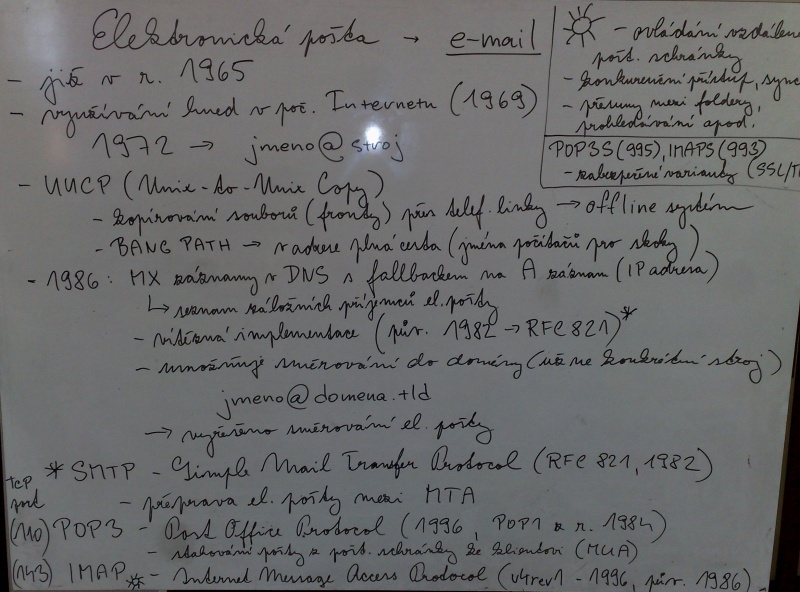 Elektronická pošta → e-mail
- již v r. 1965
- využívání hned v poč. Internetu (1969)
1972 → jmeno@stroj
- UUCP (Unix-to-Unix Copy)
- kopírování souborů (fronty) přes telef. linky → offline systém
- BANG PATH → v adrese plná cesta (jména počítačů pro skoky)
- 1986: MX záznamy v DNS s fallbackem na A záznam (IP adresa)
↳ seznam záložních příjemců el. pošty
- vítězná implementace (pův. 1982 → RFC 821)*
- umožňuje směrování do domény (už ne konkrétní stroj)
jmeno@domena.tld
→ vyřešeno směrování el. pošty
* SMTP - Simple Mail Transfer Protocol (RFC 821, 1982)
- přeprava el. pošty mezi MTA
tcp
port
(110) POP3 - Post Office Protocol (1996, POP1 z r. 1984)
- stahování pošty z pošt. schránky ke klientovi (MUA)
(143) IMAP☼ - Internet Message Access Protocol (v4rev1 - 1996, pův. 1986)
☼ - ovládání vzdálené
pošt. schránky
- konkurenční přístup, sync
- přesuny mezi foldery,
prohledávání apod.
POP3S (995), IMAPS (993)
- zabezpečené varianty (SSL/T